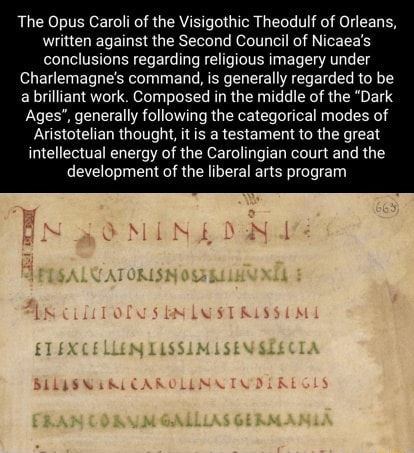 The Opus Caroli of the Visigothic Theodulf of Orleans,
written against the Second Council of Nicaea's
conclusions regarding religious imagery under
Charlemagne's command, is generally regarded to be
a brilliant work. Composed in the middle of the “Dark
Ages”, generally following the categorical modes of
Aristotelian thought, it is a testament to the great
intellectual energy of the Carolingian court and the
development of the liberal arts program
IN NOMINE DNI
ETSALVATORISNOSTRIIHV
INCIPITOPVSINLVSTRISSIMI
ETEXCELLENTISSIMISEVSPECTA
BILISVIRICAROLINVTVDIREGIS
FRANCORVMGALLIASGERMANIA